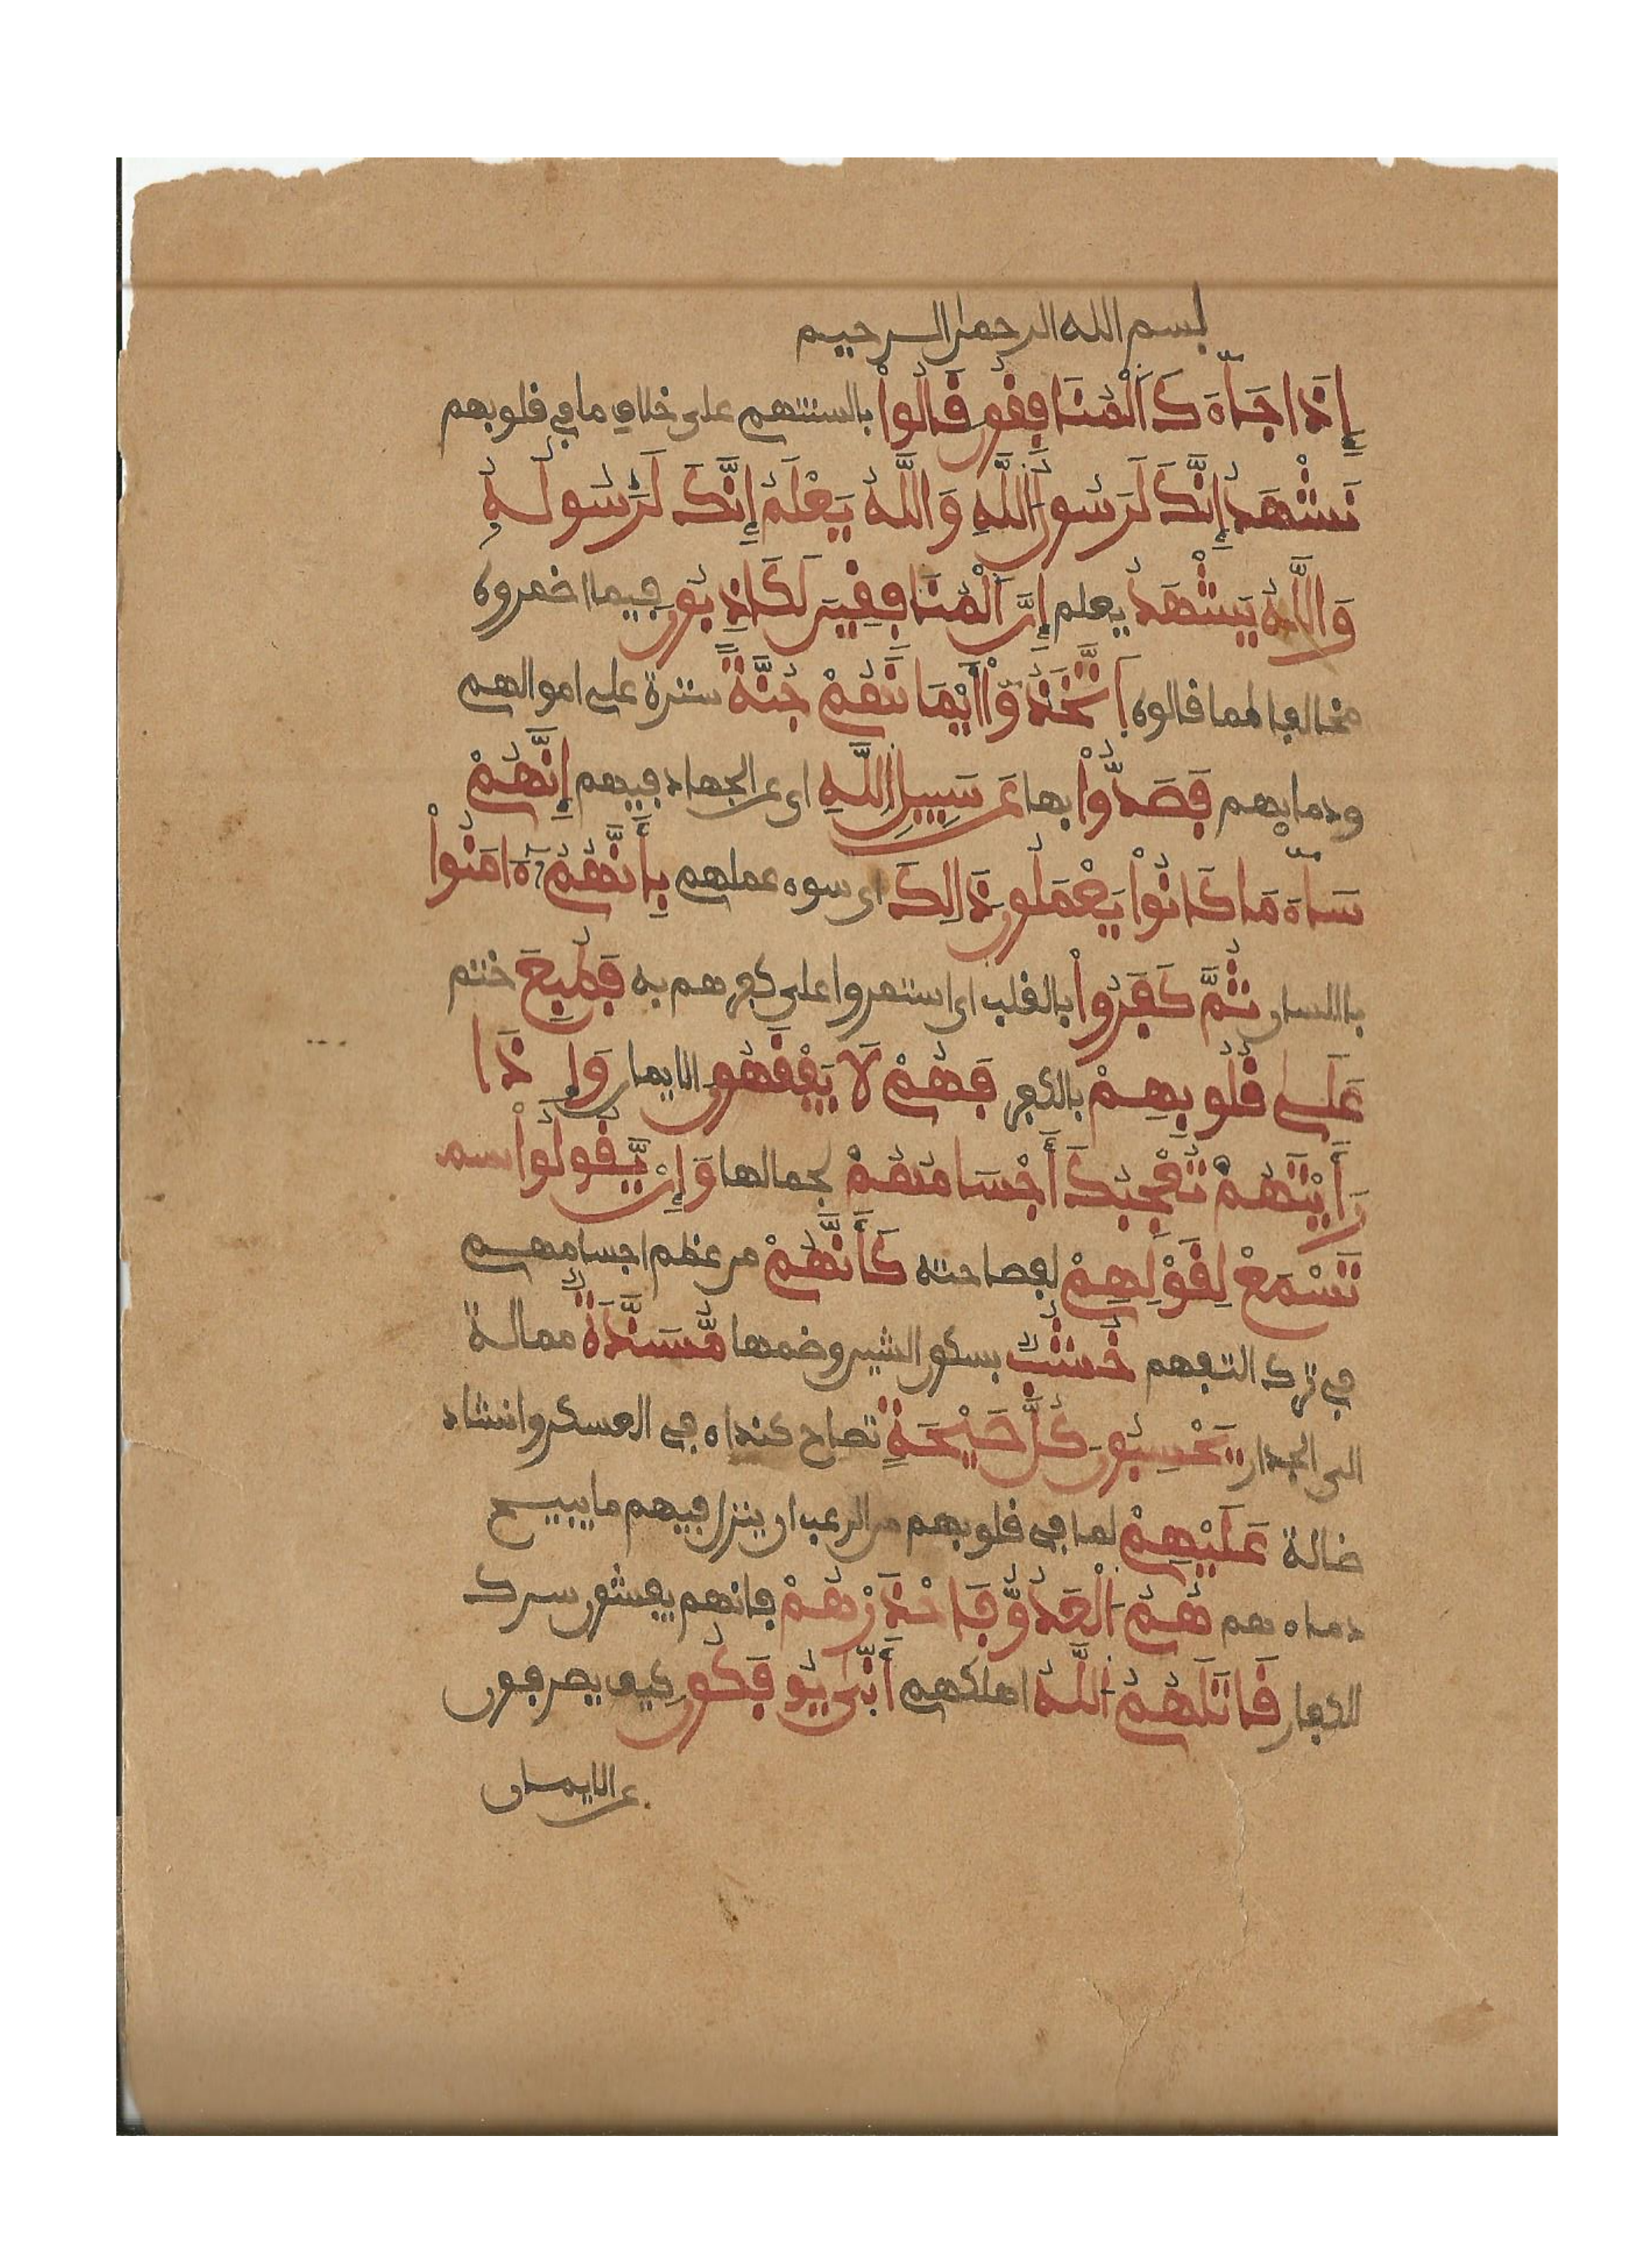 بسم الله الرحمن الرحيم
إِذَا جَآءَ كَ اَلْمُنَافِقُونَ قَالُواْ بالسنتهم على خلاف ما في قلوبهم
نَشْهَدُ إِنَّكَ لَرَسُولُ اُللَّهِ وَاللَّهُ يَعْلَمُ إِنَّكَ لَرَسُولُهُ
وَاللَّهُ يَشْهَدُ يعلم إِنَّ اَلْمُنَافِقِينَ لَكَاذِبُونَ فيما اضمروه
مخالفا لما قالوه اَتَّخَذُوٓاْ أَيْمَانَهُمْ جُنَّةً سترة على اموالهم
ودمايهم فَصَدُّواْ بها عَن سَبِيلِ اِللَّهِ اى عن الجهاد فيهم إِنَّهُمْ
سَآءَ مَا كَانُواْ يَعْمَلُونَ ذَالِكَ اى سوء عملهم بِأَنَّهُمُۥٓ ءَامَنُواْ
باللسان ثُمَّ كَفَرُواْ بالقلب اى استمروا على كفرهم به فَطُبِعَ ختم
عَلَى قُلُوبِهِمْ بالكفر فَهُمْ لَا يَفْقَهُونَ الايمان وَإِذَا
رَأَيْتَهُمْ تُعْجِبُكَ أَجْسَامُهُمْ لجمالها وَإِنْ يَّقُولُواْ سم
تَسْمَعْ لِقَوْلِهِمْ لفصاحته كَأَنَّهُمْ من عظم اجسامهم
في ترك التفهم خُشُبٌ بسكون الشين وضمها مُّسَنَّدَةٌ ممالة
الى الجدار يَحْسِبُونَ كُلَّ صَيْحَةٍ تصاح كنداء في العسكر وانشاد
ضالة عَلَيْهِمْ لما في قلوبهم من الرعب ان ينزل فيهم ما يبيح
دماءهم هُمُ اَلْعَدُوُّ فَاحْذَرْهُمْ فانهم يفشون سرك
للكفار قَاتَلَهُمُ اُللَّهُ اهلكهم أَنّٰى يُوفَكُونَ كيف يصرفون
عن الايمان